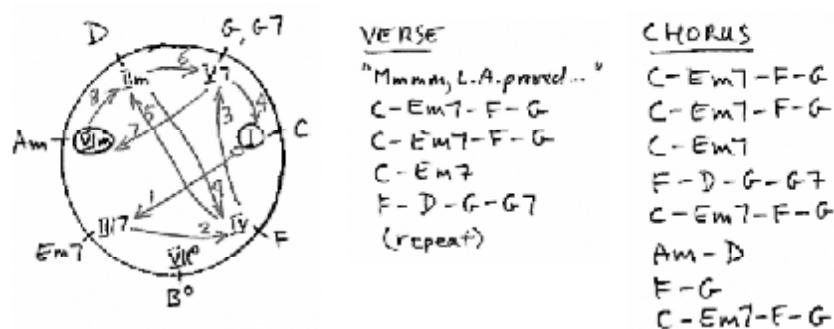 D
G, G7
IIm
6
V7
8
5
3
4
Am
VIm
7
I
C
1
9
III7
2
IV
Em7
F
VII°
B°
VERSE
"Mmmm, L.A. proved..."
C-Em7-F-G
C-Em7-F-G
C-Em7
F-D-G-G7
(repeat)
CHORUS
C-Em7-F-G
C-Em7-F-G
C-Em7
F-D-G-G7
C-Em7-F-G
Am-D
F-G
C-Em7-F-G